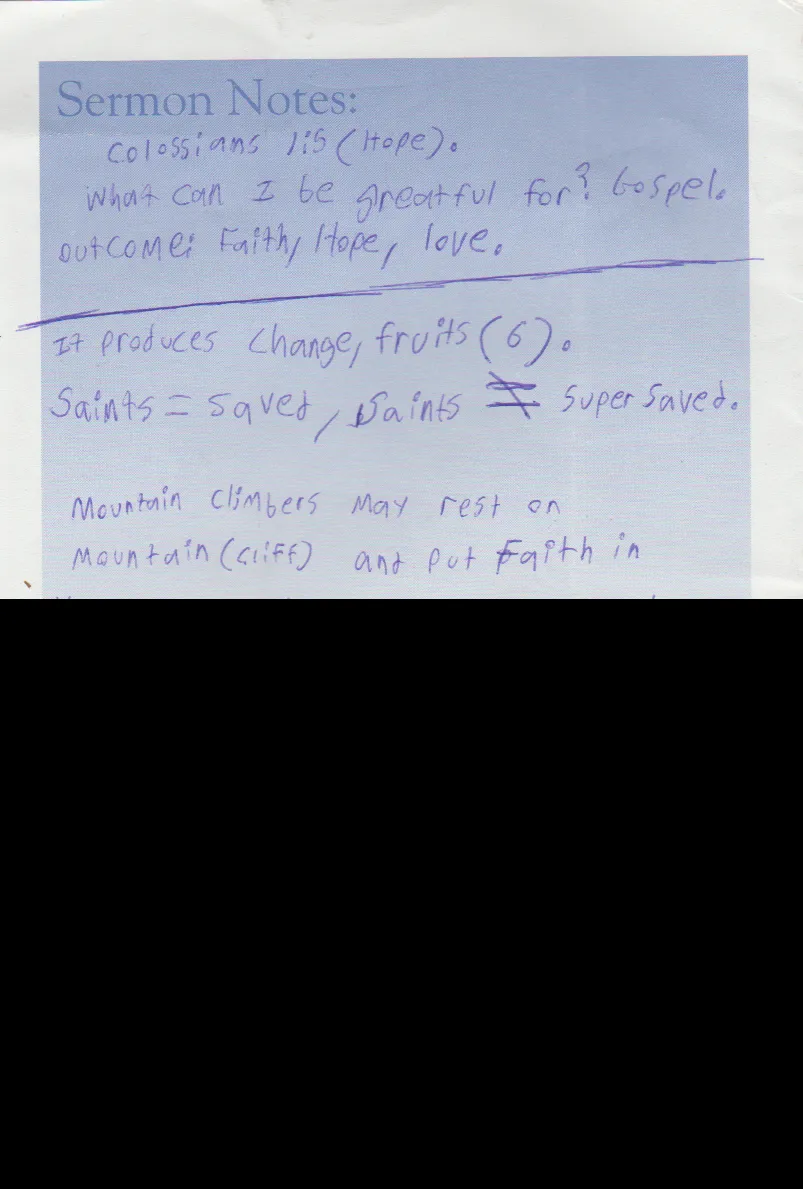 Sermon Notes:
Colossians 1:5 (Hope).
What can I be greatful for? Gospel.
Outcome: Faith, Hope, love.
It produces change, fruits (6).
Saints = saved, Saints ≠ super saved.
Mountain climbers may rest on
Mountain (cliff) and put Faith in